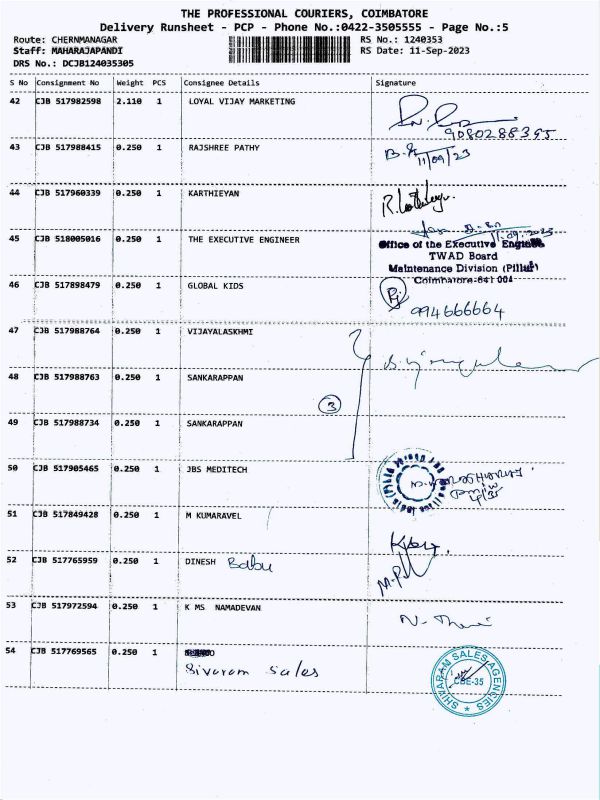 THE PROFESSIONAL COURIERS, COIMBATORE
Delivery Runsheet - PCP - Phone No.:0422-3505555 - Page No.:5
Route: CHERNMANAGAR RS No.: 1240353
Staff: MAHARAJAPANDI RS Date: 11-Sep-2023
DRS No.: DCJB124035305
S No Consignment No Weight PCS Consignee Details Signature
42 CJB 517982598 2.110 1 LOYAL VIJAY MARKETING
9080288395
43 CJB 517988415 0.250 1 RAJSHREE PATHY
11/09/23
44 CJB 517960339 0.250 1 KARTHIEYAN
11.09.2023
45 CJB 518005016 0.250 1 THE EXECUTIVE ENGINEER Office of the Executive Engineer
TWAD Board
Maintenance Division (Pillur)
Coimbatore-641 001
46 CJB 517898479 0.250 1 GLOBAL KIDS
994666664
47 CJB 517988764 0.250 1 VIJAYALASKHMI
48 CJB 517988763 0.250 1 SANKARAPPAN
3
49 CJB 517988734 0.250 1 SANKARAPPAN
50 CJB 517905465 0.250 1 JBS MEDITECH
51 CJB 517849428 0.250 1 M KUMARAVEL
52 CJB 517765959 0.250 1 DINESH Babu
53 CJB 517972594 0.250 1 K MS NAMADEVAN
54 CJB 517769565 0.250 1
Sivaram Sales
SHIVARAM SALES AGENCIES
CBE-35